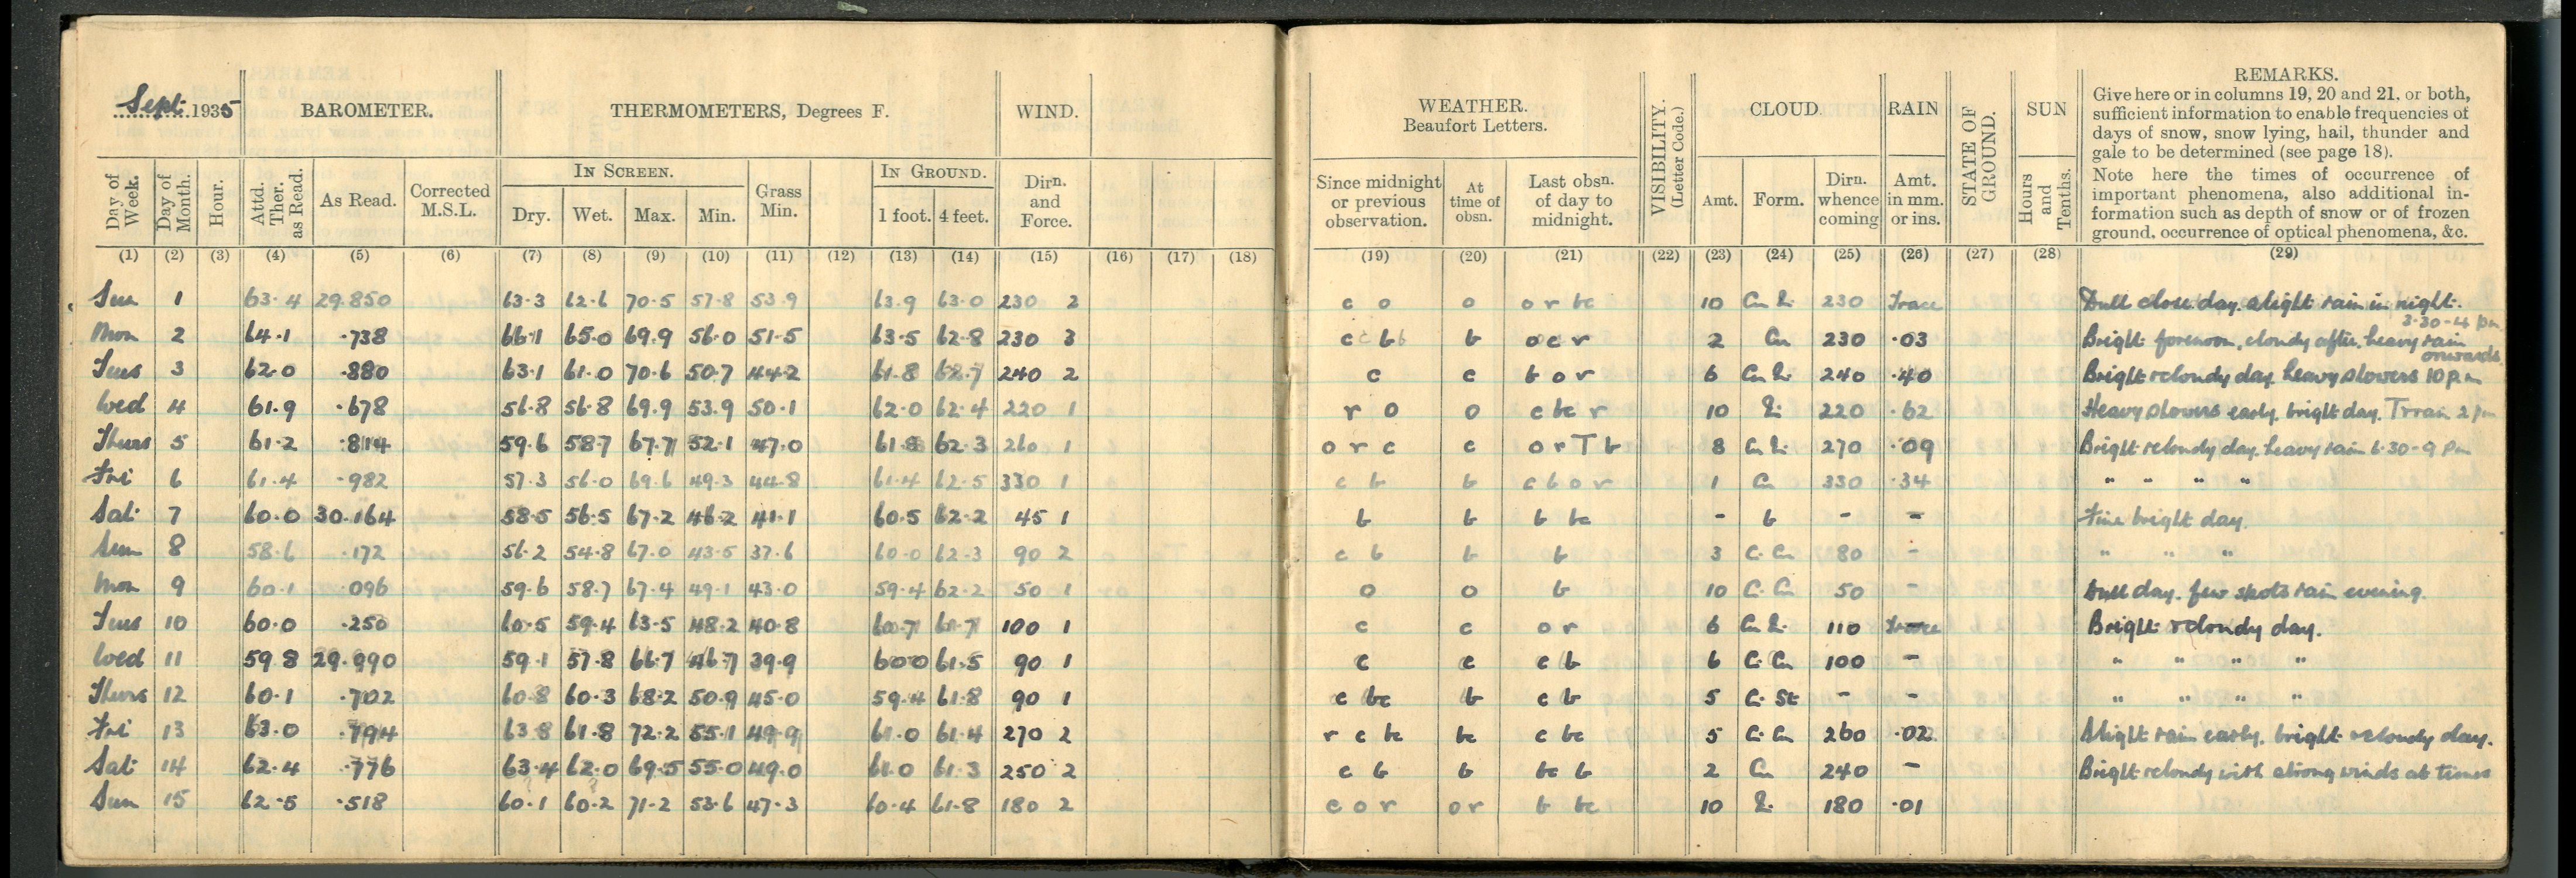 Sept. 1935
BAROMETER.
THERMOMETERS, Degrees F.
WIND.
WEATHER.
Beaufort Letters.
VISIBILITY.
(Letter Code.)
CLOUD
RAIN
STATE OF
GROUND.
SUN
REMARKS.
Give here or in columns 19, 20 and 21, or both,
sufficient information to enable frequencies of
days of snow, snow lying, hail, thunder and
gale to be determined (see page 18).
Note here the times of occurrence of
important phenomena, also additional in-
formation such as depth of snow or of frozen
ground, occurrence of optical phenomena, &c.
Day of Week.
Day of Month.
Hour.
Attd. Ther. as Read.
As Read.
Corrected M.S.L.
IN SCREEN.
Dry. Wet. Max. Min.
Grass Min.
IN GROUND.
1 foot. 4 feet.
Dirn. and Force.
Since midnight or previous observation.
At time of obsn.
Last obsn. of day to midnight.
Amt. Form. Dirn. whence coming
Amt. in mm. or ins.
Hours and Tenths.
(1) (2) (3) (4) (5) (6) (7) (8) (9) (10) (11) (12) (13) (14) (15) (16) (17) (18) (19) (20) (21) (22) (23) (24) (25) (26) (27) (28) (29)
Sun 1 63.4 29.850 63.3 62.6 70.5 57.8 53.9 63.9 63.0 230 2 c o o o r bc 10 230 Trace Dull close day. slight rain in night.
Mon 2 64.1 .738 66.1 65.0 69.9 56.0 51.5 63.5 62.8 230 3 c b b b o c r 2 Cu 230 .03 Bright forenoon, cloudy after, heavy rain 3.30-4 pm
Tues 3 62.0 .880 63.1 61.0 70.6 50.7 44.2 61.8 62.7 240 2 c c b o r 6 240 .40 Bright & cloudy day heavy slovers 10 p.m onwards
Wed 4 61.9 .678 56.8 56.8 69.9 53.9 50.1 62.0 62.4 220 1 r o o c bc r 10 220 .62 Heavy slovers early, bright day. T rain 2 pm
Thurs 5 61.2 .814 59.6 58.7 67.7 52.1 47.0 61.8 62.3 260 1 o r c c o r T b 8 270 .09 Bright & cloudy day. heavy rain 6.30-9 pm
Fri 6 61.4 .982 57.3 56.0 69.6 49.3 44.8 61.4 62.5 330 1 c b b c b o r 1 Cu 330 .34 " " " "
Sat 7 60.0 30.164 58.5 56.5 67.2 46.2 41.1 60.5 62.2 45 1 b b b bc - b - - Fine bright day.
Sun 8 58.6 .172 56.2 54.8 67.0 43.5 37.6 60.0 62.3 90 2 c b b b 3 C. Cu 80 - " " "
Mon 9 60.1 .096 59.6 58.7 67.4 49.1 43.0 59.4 62.2 50 1 o o b 10 C. Cu 50 - Dull day. few spots rain evening.
Tues 10 60.0 .250 60.5 59.4 63.5 48.2 40.8 60.7 61.7 100 1 c c o r 6 110 trace Bright & cloudy day.
Wed 11 59.8 29.990 59.1 57.8 66.7 46.7 39.9 60.0 61.5 90 1 c c c b 6 C. Cu 100 - " " " "
Thurs 12 60.1 .702 60.8 60.3 68.2 50.9 45.0 59.4 61.8 90 1 c bc b c b 5 C. St - - " " " "
Fri 13 63.0 .794 63.8 61.8 72.2 55.1 49.9 61.0 61.4 270 2 r c bc bc c bc 5 C. Cu 260 .02 Slight rain early. bright & cloudy day.
Sat 14 62.4 .776 63.4 62.0 69.5 55.0 49.0 61.0 61.3 250 2 c b b bc b 2 Cu 240 - Bright & cloudy with strong winds at times
Sun 15 62.5 .518 60.1 ? 60.2 ? 71.2 53.6 47.3 60.4 61.8 180 2 c o r o r b bc 10 180 .01